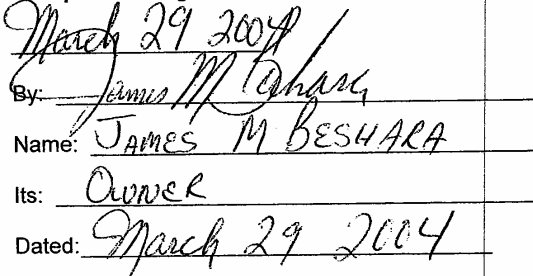 March 29 2004
By: James M Beshara
Name: JAMES M BESHARA
Its: OWNER
Dated: March 29 2004